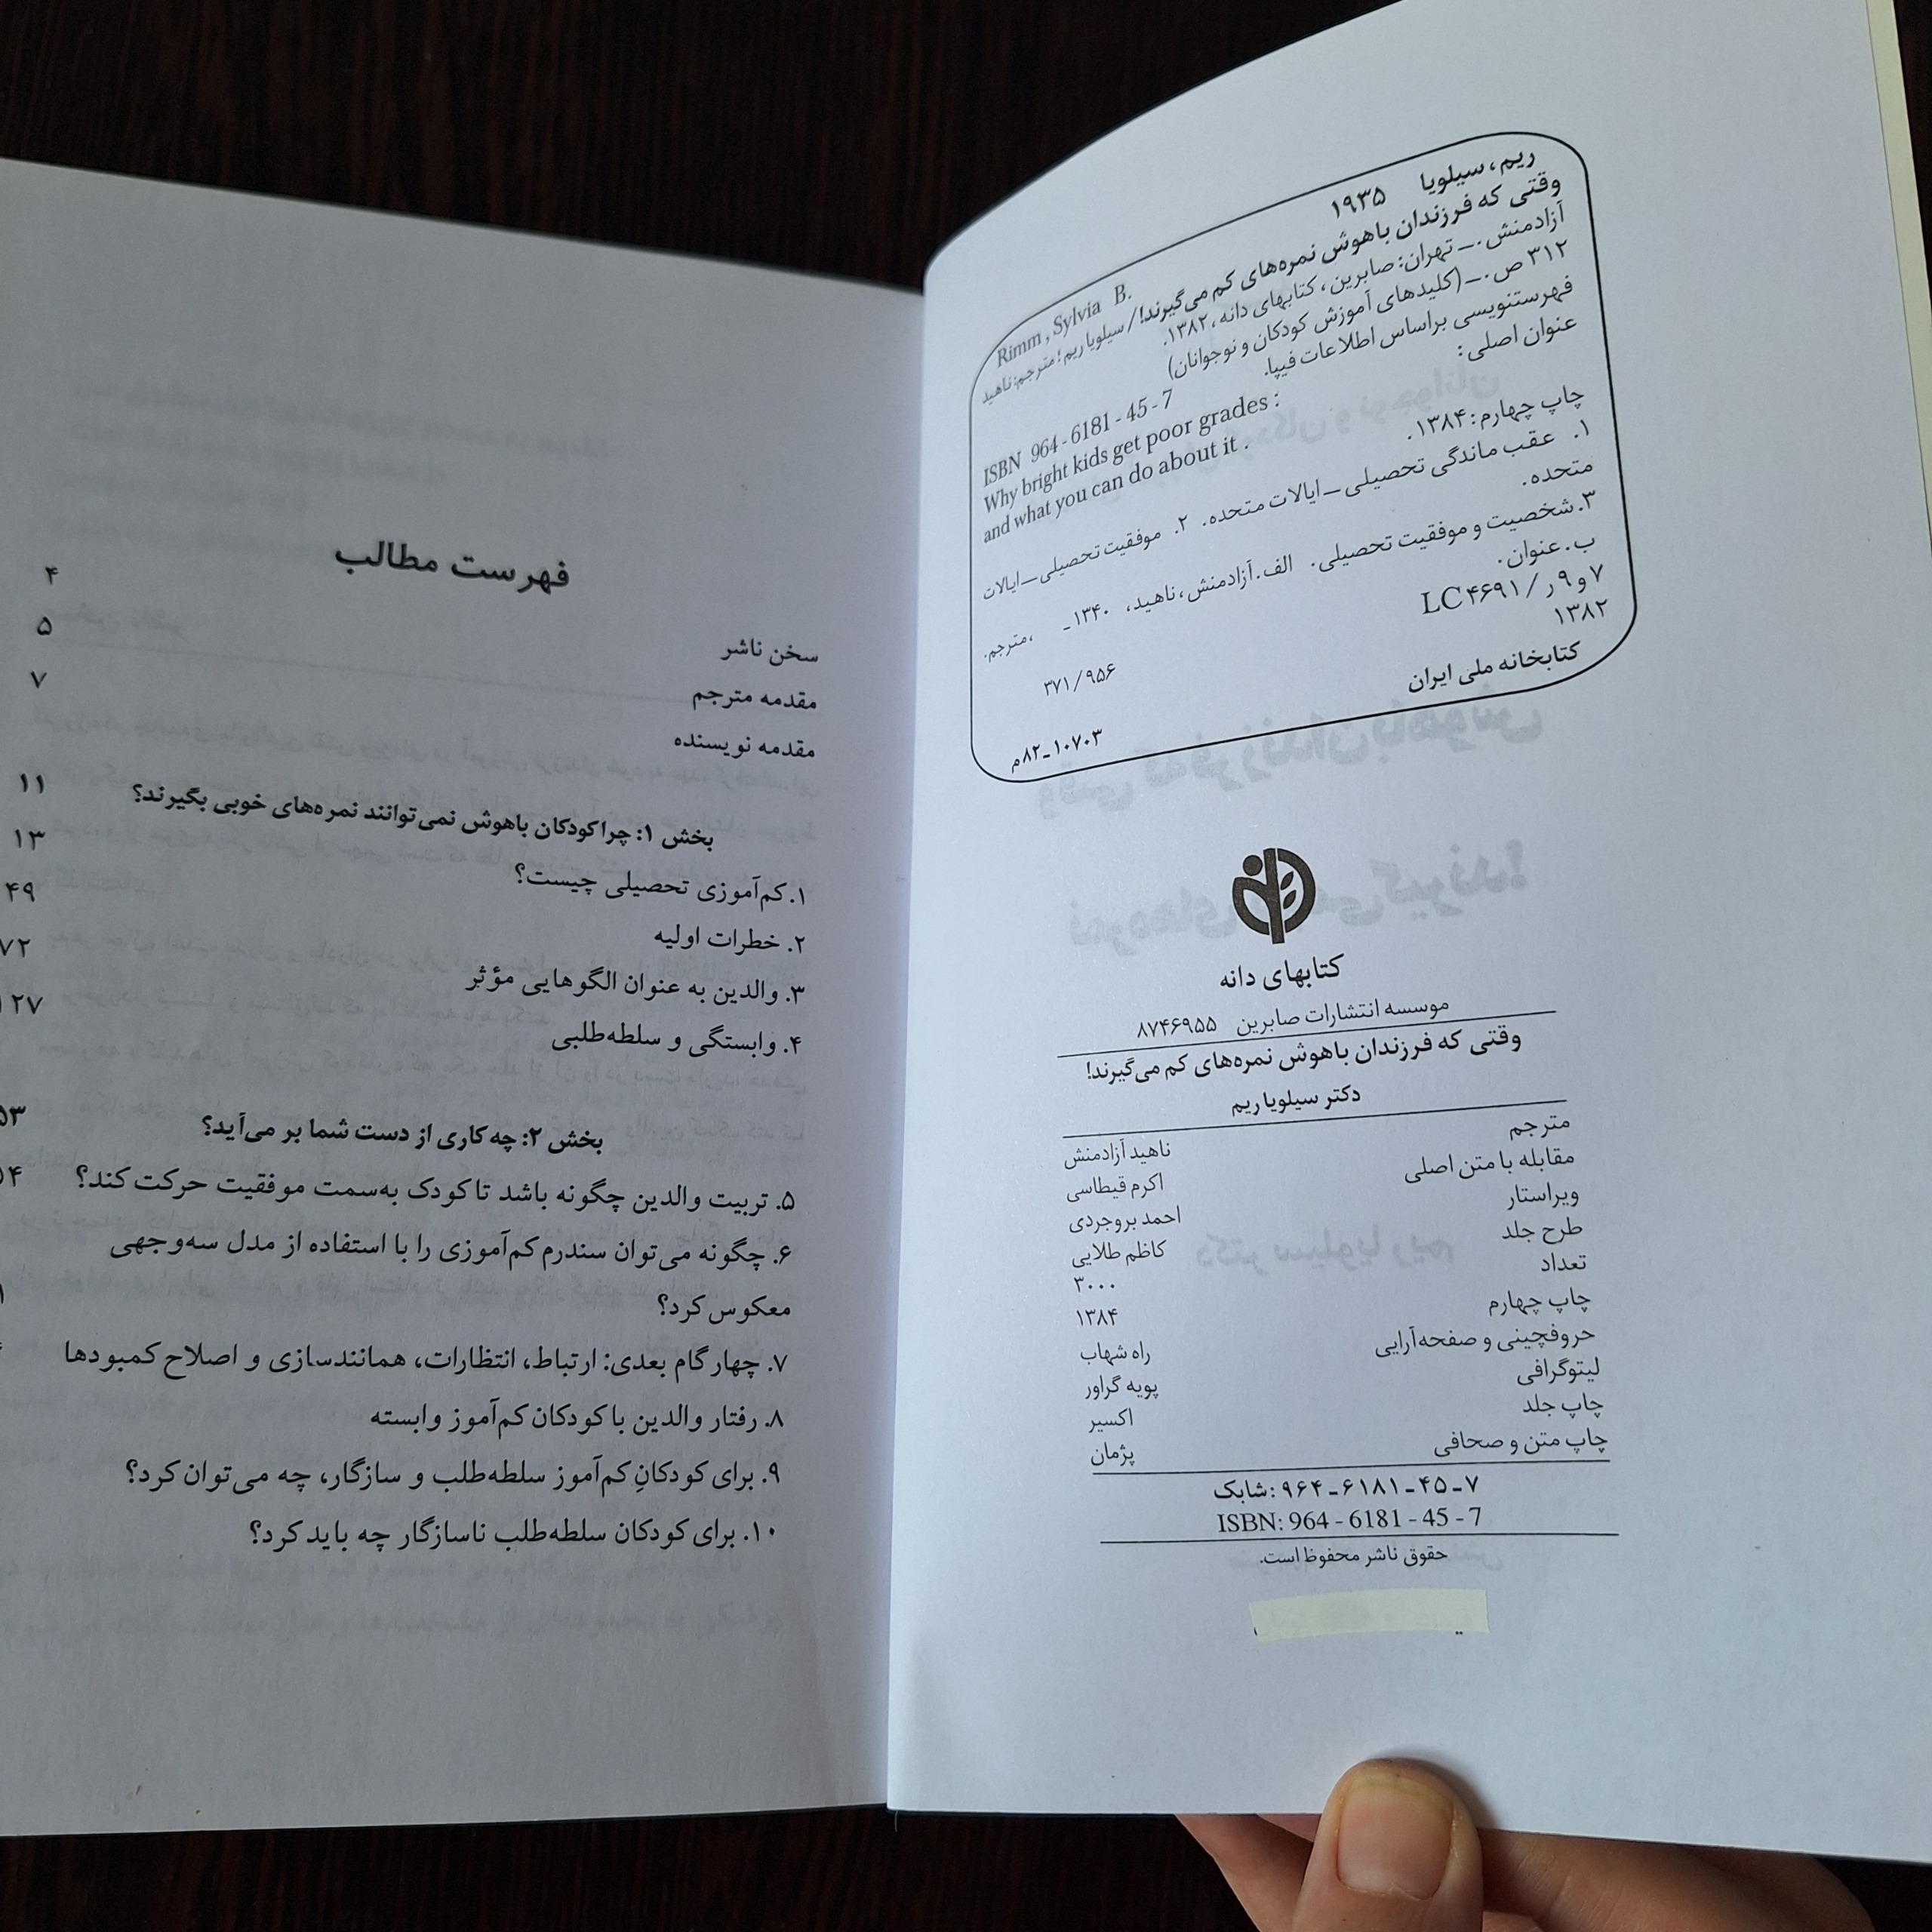 ریم، سیلویا ۱۹۳۵
Rimm , Sylvia B.
وقتی که فرزندان باهوش نمره‌های کم می‌گیرند! / سیلویا ریم؛ مترجم: ناهید
آزادمنش. ـــ تهران: صابرین، کتابهای دانه، ۱۳۸۲.
۳۱۲ ص. ـــ (کلیدهای آموزش کودکان و نوجوانان)
ISBN 964 - 6181 - 45 - 7
فهرستنویسی براساس اطلاعات فیپا.
عنوان اصلی:
Why bright kids get poor grades :
and what you can do about it .
چاپ چهارم: ۱۳۸۴.
۱. عقب ماندگی تحصیلی ـــ ایالات متحده. ۲. موفقیت تحصیلی ـــ ایالات
متحده.
۳. شخصیت و موفقیت تحصیلی. الف. آزادمنش، ناهید، ۱۳۴۰ ـ ، مترجم.
ب. عنوان.
۷ و ۹ ر / LC ۴۶۹۱
۳۷۱ / ۹۵۶
۱۳۸۲
کتابخانه ملی ایران
۱۰۷۰۳ ـ ۸۲ م
کتابهای دانه
موسسه انتشارات صابرین ۸۷۴۶۹۵۵
وقتی که فرزندان باهوش نمره‌های کم می‌گیرند!
دکتر سیلویا ریم
مترجم ناهید آزادمنش
مقابله با متن اصلی اکرم قیطاسی
ویراستار احمد بروجردی
طرح جلد کاظم طلایی
تعداد ۳۰۰۰
چاپ چهارم ۱۳۸۴
حروفچینی و صفحه‌آرایی راه شهاب
لیتوگرافی پویه گراور
چاپ جلد اکسیر
چاپ متن و صحافی پژمان
شابک: ۹۶۴ ـ ۶۱۸۱ ـ ۴۵ ـ ۷
ISBN: 964 - 6181 - 45 - 7
حقوق ناشر محفوظ است.
فهرست مطالب
سخن ناشر ۴
مقدمه مترجم ۵
مقدمه نویسنده ۷
بخش ۱: چرا کودکان باهوش نمی‌توانند نمره‌های خوبی بگیرند؟ ۱۱
۱. کم‌آموزی تحصیلی چیست؟ ۱۳
۲. خطرات اولیه ۴۹
۳. والدین به عنوان الگوهایی مؤثر ۷۲
۴. وابستگی و سلطه‌طلبی ۱۲۷
بخش ۲: چه کاری از دست شما بر می‌آید؟
۵. تربیت والدین چگونه باشد تا کودک به‌سمت موفقیت حرکت کند؟
۶. چگونه می‌توان سندرم کم‌آموزی را با استفاده از مدل سه‌وجهی
معکوس کرد؟
۷. چهار گام بعدی: ارتباط، انتظارات، همانندسازی و اصلاح کمبودها
۸. رفتار والدین با کودکان کم‌آموز وابسته
۹. برای کودکانِ کم‌آموز سلطه‌طلب و سازگار، چه می‌توان کرد؟
۱۰. برای کودکان سلطه‌طلب ناسازگار چه باید کرد؟